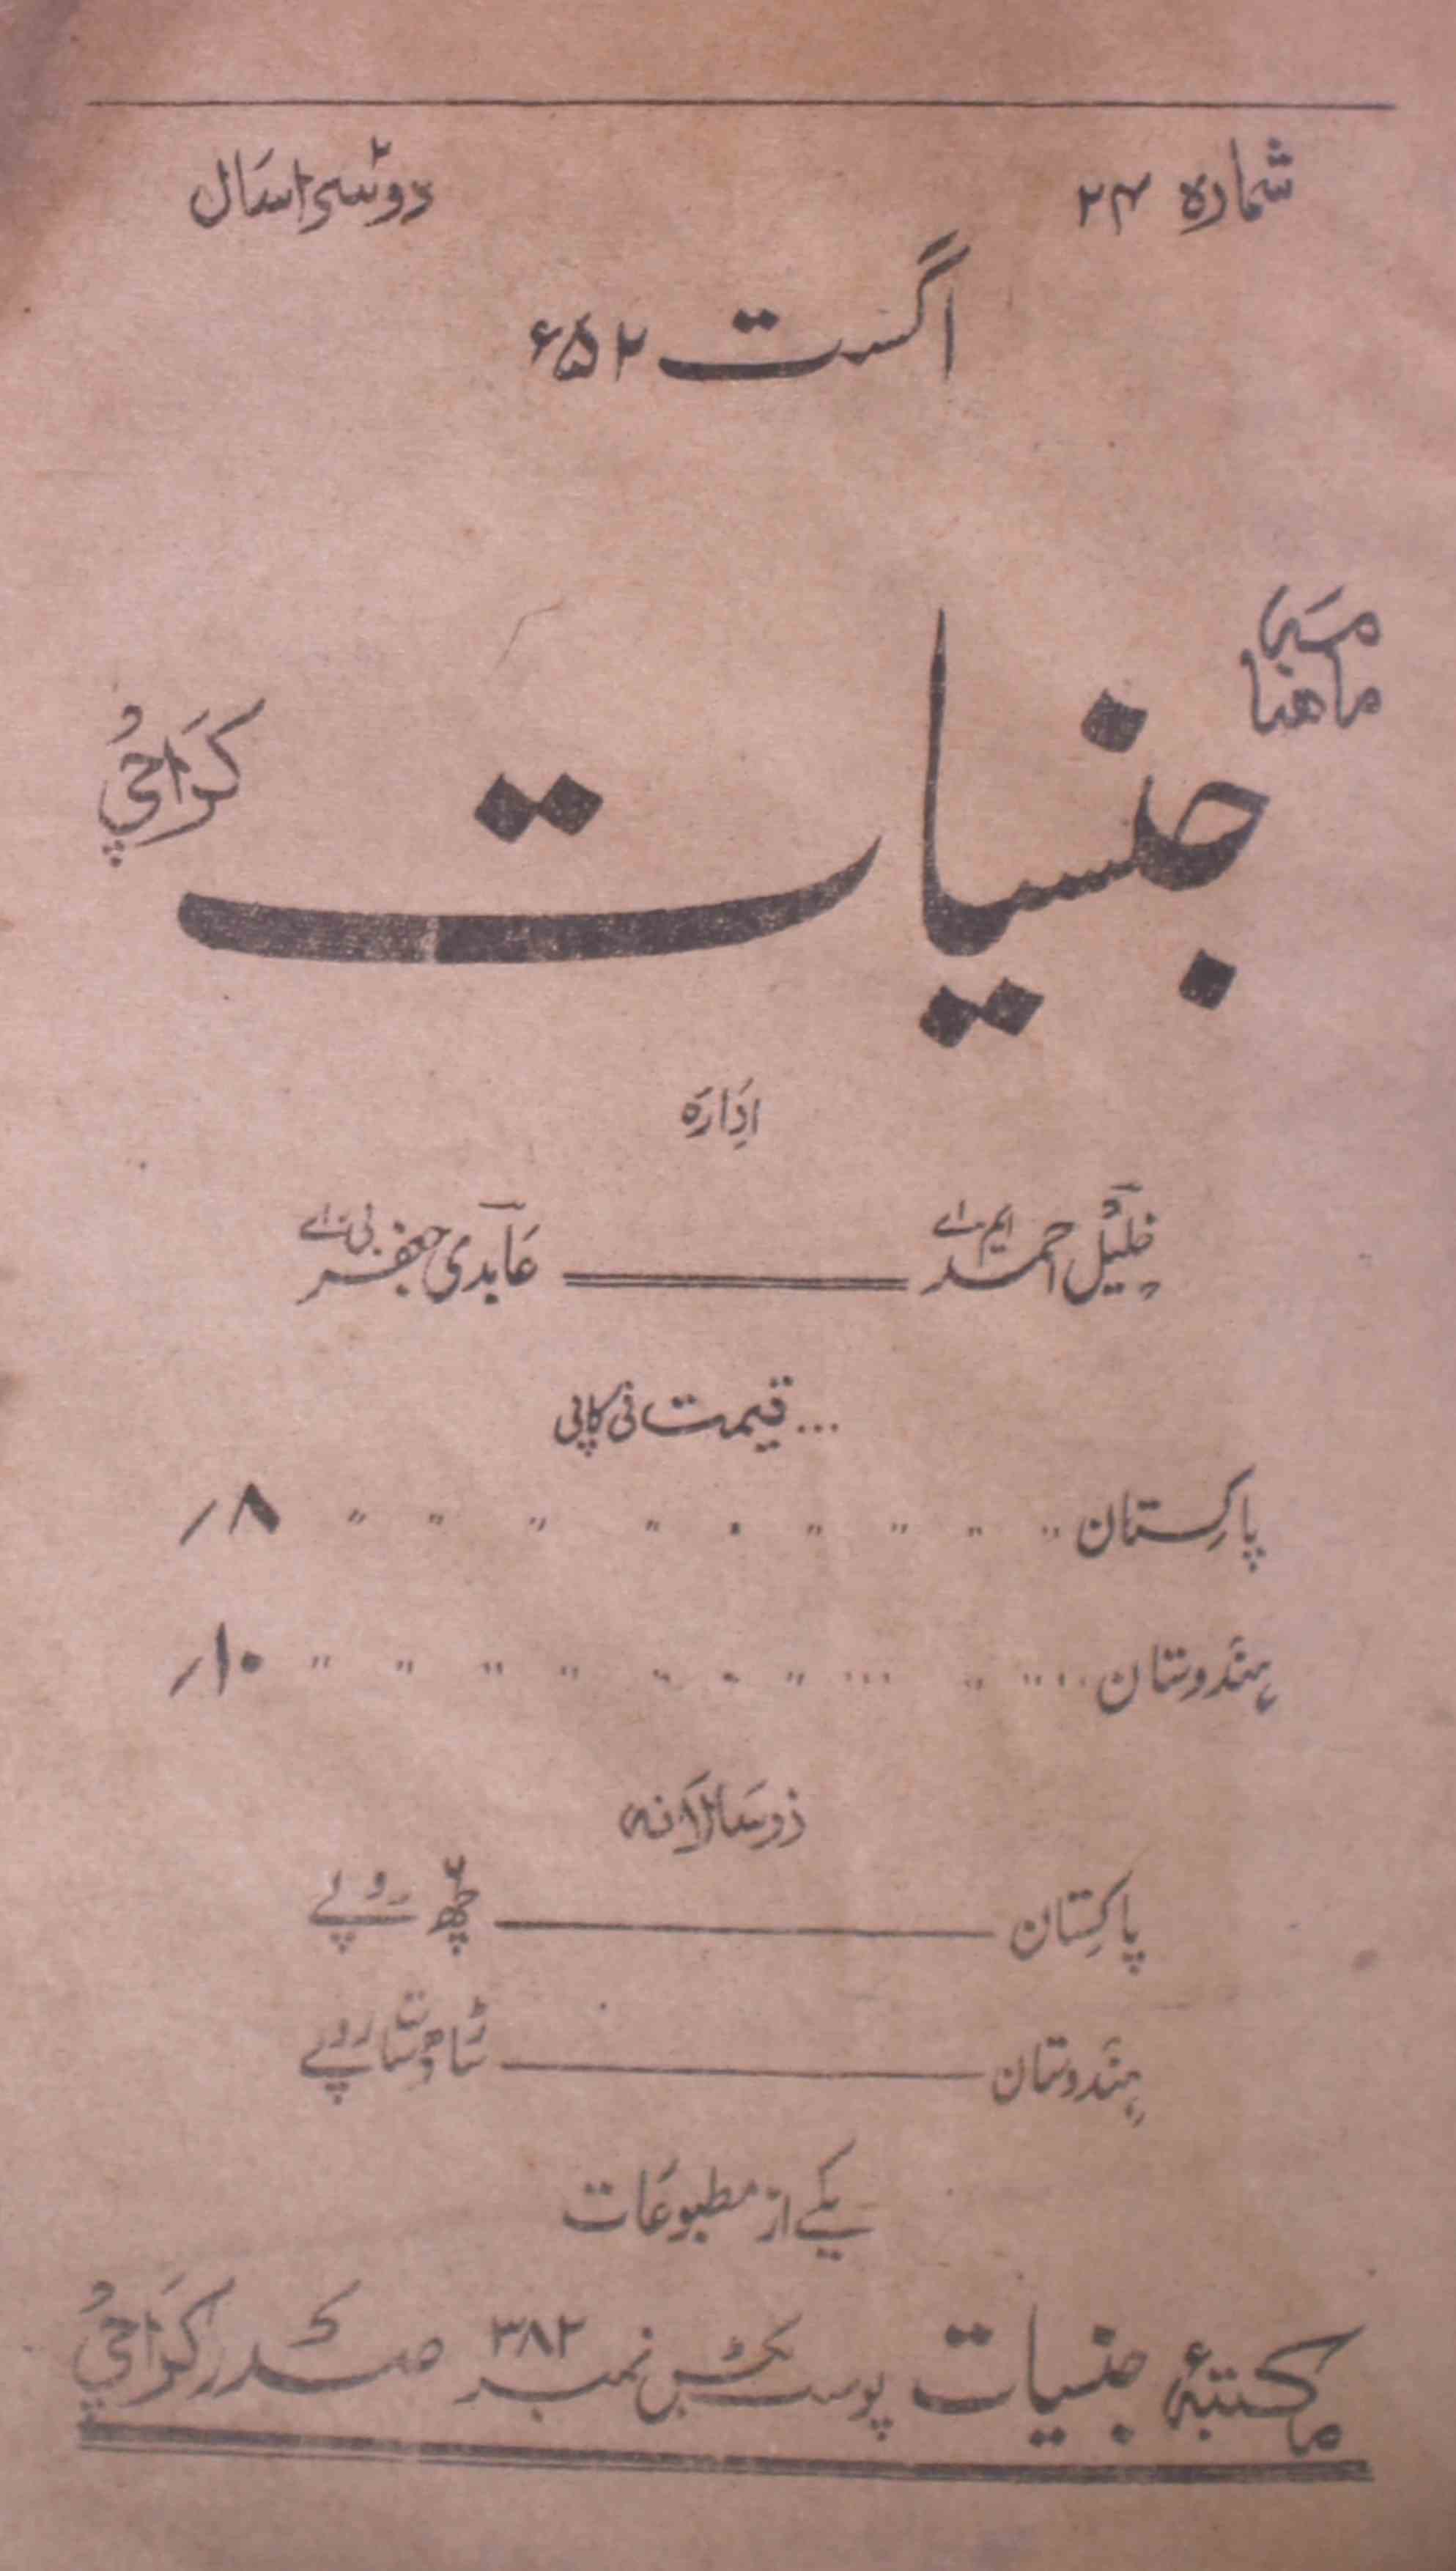 شمارہ ۲۴ دوسرا سال
اگست ۵۲ء
ماهنامہ
جنسیات
کراچی
ادارہ
خلیل احمد ایم۔اے عابدی جعفر بی۔اے
...قیمت فی کاپی
پاکستان ۸/
ہندوستان ۱۰/
زر سالانہ
پاکستان چھ روپے
ہندوستان روپے
یکے از مطبوعات
مکتبۂ جنسیات پوسٹ بکس نمبر ۳۸۲ صدر کراچی